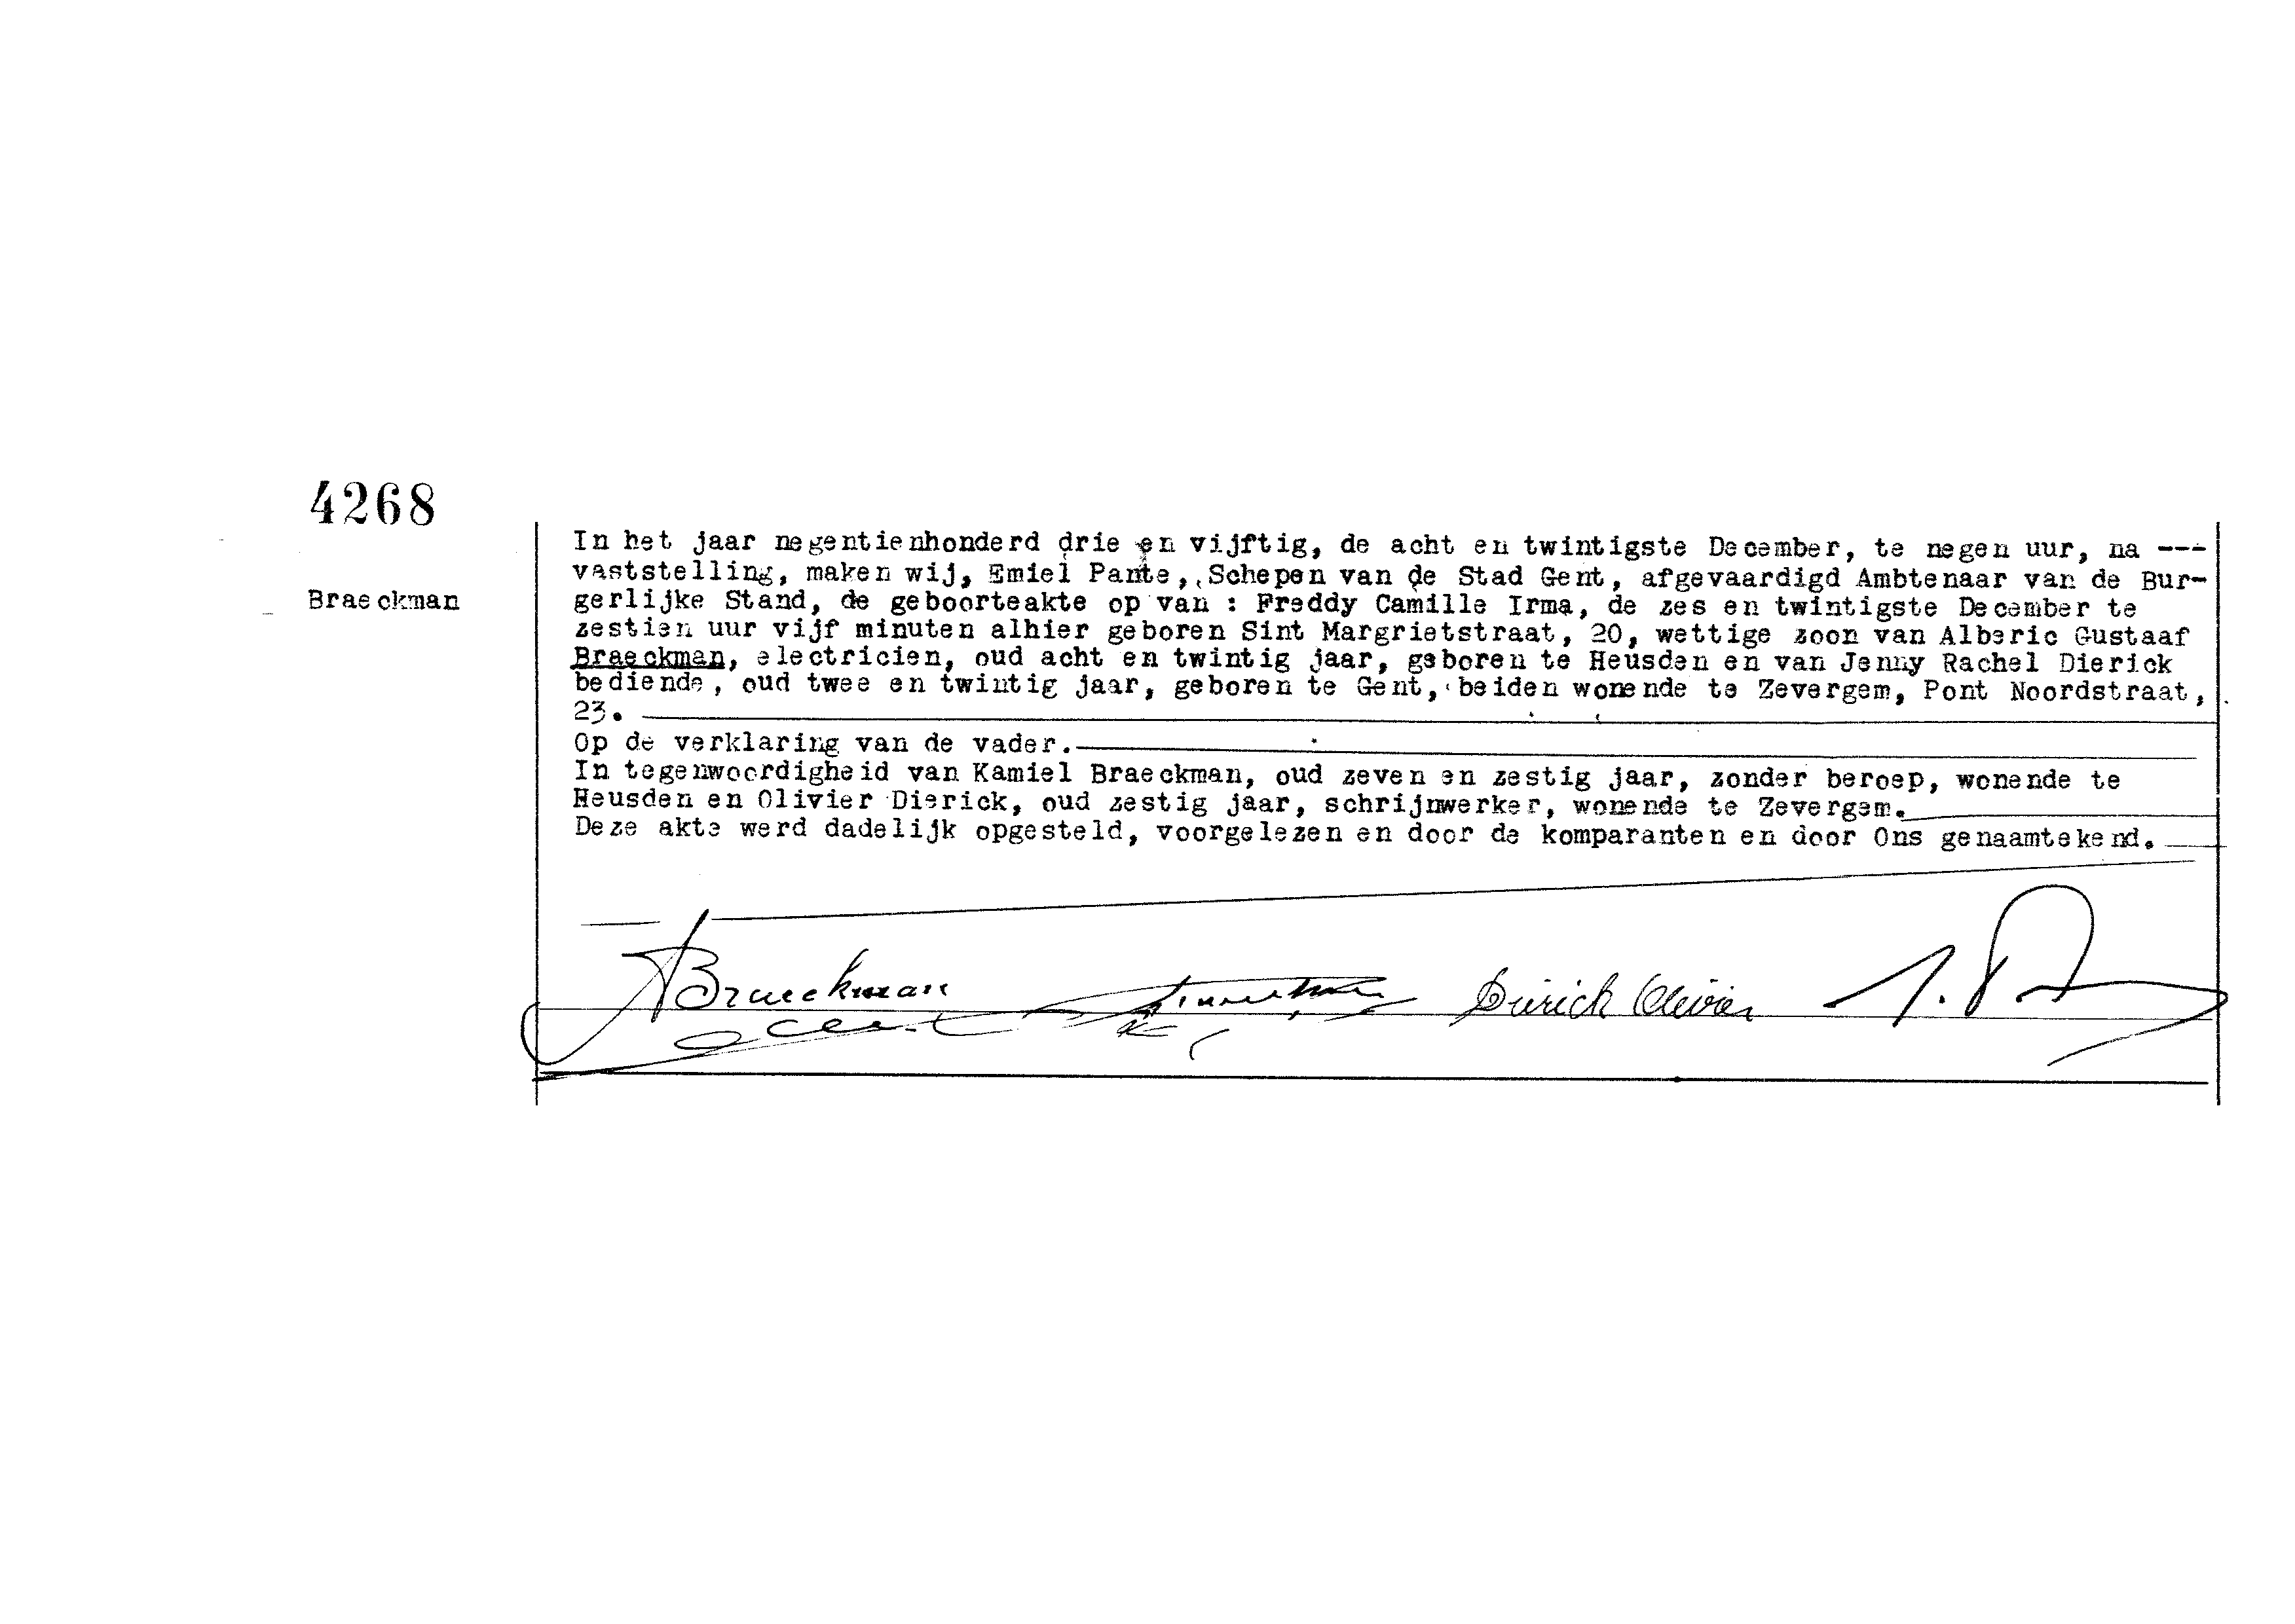 4268
Braeckman
In het jaar negentienhonderd drie en vijftig, de acht en twintigste December, te negen uur, na ---
vaststelling, maken wij, Emiel Pante, Schepen van de Stad Gent, afgevaardigd Ambtenaar van de Bur-
gerlijke Stand, de geboorteakte op van : Freddy Camille Irma, de zes en twintigste December te
zestien uur vijf minuten alhier geboren Sint Margrietstraat, 20, wettige zoon van Alberic Gustaaf
Braeckman, electricien, oud acht en twintig jaar, geboren te Heusden en van Jenny Rachel Dierick
bediende, oud twee en twintig jaar, geboren te Gent, beiden wonende te Zevergem, Pont Noordstraat,
23.
Op de verklaring van de vader.
In tegenwoordigheid van Kamiel Braeckman, oud zeven en zestig jaar, zonder beroep, wonende te
Heusden en Olivier Dierick, oud zestig jaar, schrijnwerker, wonende te Zevergem.
Deze akte werd dadelijk opgesteld, voorgelezen en door de komparanten en door Ons genaamtekend.
ABraeckman Dierick Olivier